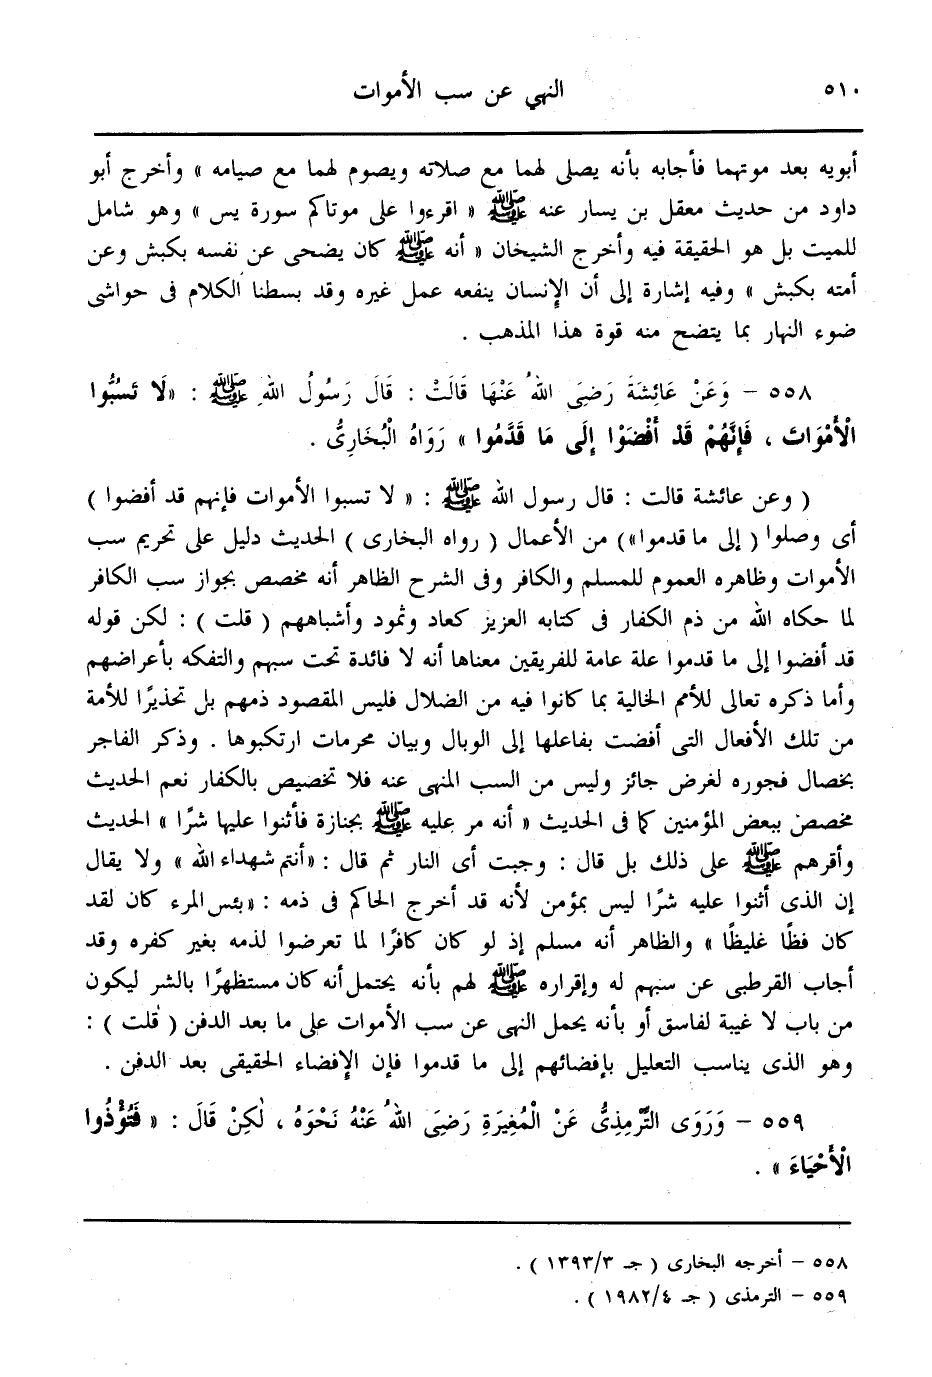 ٥١٠ النهي عن سب الأموات
أبويه بعد موتهما فأجابه بأنه يصلى لهما مع صلاته ويصوم لهما مع صيامه » وأخرج أبو
داود من حديث معقل بن يسار عنه ﷺ « اقرءوا على موتاكم سورة يس » وهو شامل
للميت بل هو الحقيقة فيه وأخرج الشيخان « أنه ﷺ كان يضحى عن نفسه بكبش وعن
أمته بكبش » وفيه إشارة إلى أن الإنسان ينفعه عمل غيره وقد بسطنا الكلام فى حواشى
ضوء النهار بما يتضح منه قوة هذا المذهب .
٥٥٨ – وَعَنْ عَائِشَةَ رَضِىَ اللهُ عَنْهَا قَالَتْ : قَالَ رَسُولُ اللهِ ﷺ : «لَا تَسُبُّوا
الْأَمْوَاتَ ، فَإِنَّهُمْ قَدْ أَفْضَوْا إِلَى مَا قَدَّمُوا » رَوَاهُ الْبُخَارِىُّ .
( وعن عائشة قالت : قال رسول الله ﷺ : « لا تسبوا الأموات فإنهم قد أفضوا )
أى وصلوا ( إلى ما قدموا») من الأعمال ( رواه البخارى ) الحديث دليل على تحريم سب
الأموات وظاهره العموم للمسلم والكافر وفى الشرح الظاهر أنه مخصص بجواز سب الكافر
لما حكاه الله من ذم الكفار فى كتابه العزيز كعاد وثمود وأشباههم ( قلت ) : لكن قوله
قد أفضوا إلى ما قدموا علة عامة للفريقين معناها أنه لا فائدة تحت سبهم والتفكه بأعراضهم
وأما ذكره تعالى للأمم الخالية بما كانوا فيه من الضلال فليس المقصود ذمهم بل تحذيرًا للأمة
من تلك الأفعال التى أفضت بفاعلها إلى الوبال وبيان محرمات ارتكبوها . وذكر الفاجر
بخصال فجوره لغرض جائز وليس من السب المنهى عنه فلا تخصيص بالكفار نعم الحديث
مخصص ببعض المؤمنين كما فى الحديث « أنه مر عليه ﷺ بجنازة فأثنوا عليها شرًا » الحديث
وأقرهم ﷺ على ذلك بل قال : وجبت أى النار ثم قال : «أنتم شهداء الله » ولا يقال
إن الذى أثنوا عليه شرًا ليس بمؤمن لأنه قد أخرج الحاكم فى ذمه : «بئس المرء كان لقد
كان فظًا غليظًا » والظاهر أنه مسلم إذ لو كان كافرًا لما تعرضوا لذمه بغير كفره وقد
أجاب القرطبى عن سبهم له وإقراره ﷺ لهم بأنه يحتمل أنه كان مستظهرًا بالشر ليكون
من باب لا غيبة لفاسق أو بأنه يحمل النهى عن سب الأموات على ما بعد الدفن ( قلت ) :
وهو الذى يناسب التعليل بإفضائهم إلى ما قدموا فإن الإفضاء الحقيقى بعد الدفن .
٥٥٩ – وَرَوَى التِّرْمِذِىُّ عَنْ الْمُغِيرَةِ رَضِىَ اللهُ عَنْهُ نَحْوَهُ ، لَكِنْ قَالَ : « فَتُؤْذُوا
الْأَحْيَاءَ » .
٥٥٨ – أخرجه البخارى ( جـ ١٣٩٣/٣ ) .
٥٥٩ – الترمذى ( جـ ١٩٨٢/٤ ) .